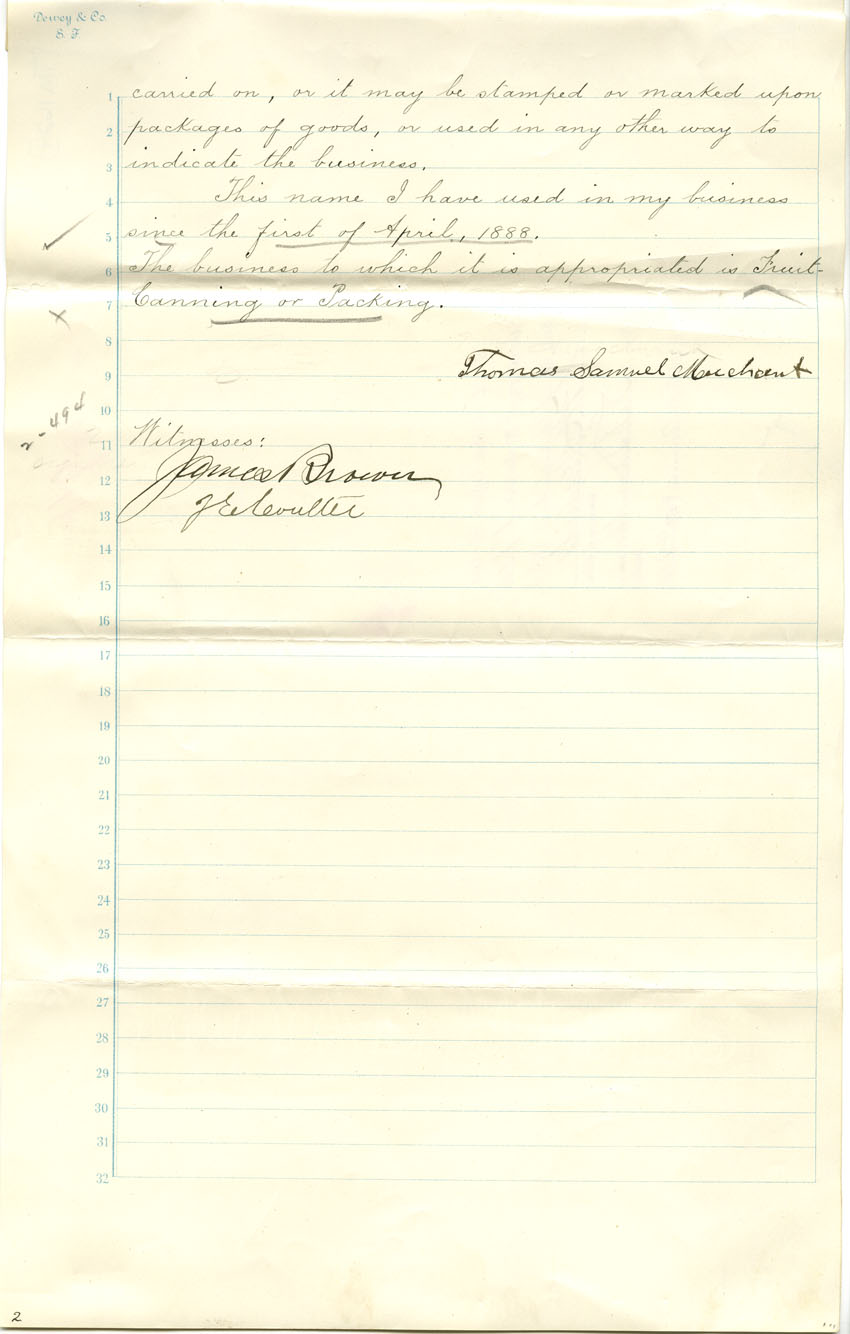 Dewey & Co.
S. F.
1 carried on, or it may be stamped or marked upon
2 packages of goods, or used in any other way to
3 indicate the business.
4 This name I have used in my business
5 since the first of April, 1888.
6 The business to which it is appropriated is Fruit-
7 Canning or Packing.
8
9 Thomas Samuel Merchant
10
2-494
11 Witnesses:
12 James Brown
13 J E Coulter
14
15
16
17
18
19
20
21
22
23
24
25
26
27
28
29
30
31
32
2